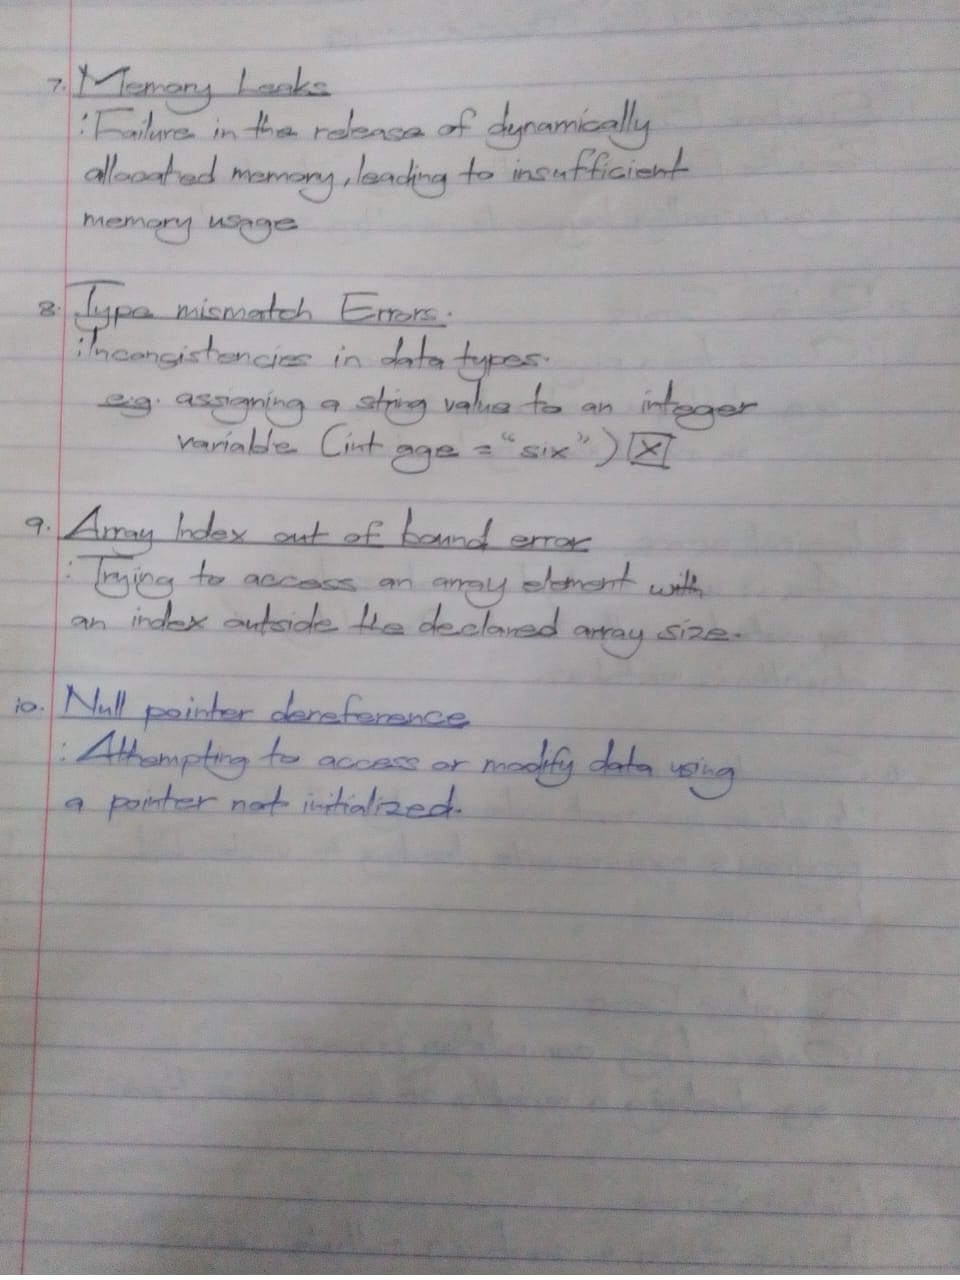 7. Memory Leaks
: Failure in the release of dynamically
allocated memory, leading to insufficient
memory usage
8. Type mismatch Errors.
: Inconsistencies in data types.
e.g. assigning a string value to an integer
variable (int age = "six") [X]
9. Array Index out of bound error
: Trying to access an array element with
an index outside the declared array size.
10. Null pointer dereference
: Attempting to access or modify data using
a pointer not initialized.